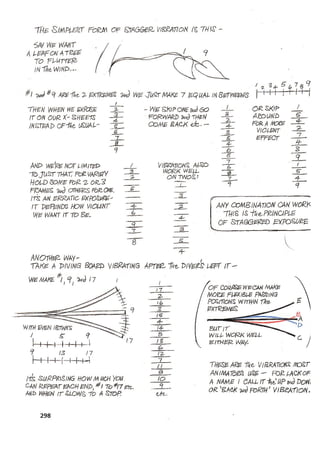 THE SIMPLEST FORM OF STAGGER VIBRATION IS THIS -
SAY WE WANT
A LEAF ON A TREE
TO FLUTTER
IN THE WIND...
1
9
1 2 3 4 5 6 7 8 9
#1 and #9 ARE the 2 EXTREMES and WE JUST MAKE 7 EQUAL IN BETWEENS
THEN WHEN WE EXPOSE
IT ON OUR X-SHEETS
INSTEAD OF the USUAL -
- WE SKIP ONE and GO
FORWARD and THEN
COME BACK etc. -
OR SKIP
AROUND
FOR A MORE
VIOLENT
EFFECT
AND WE'RE NOT LIMITED
TO JUST THAT. FOR VARIETY
HOLD SOME FOR 2 OR 3
FRAMES and OTHERS FOR ONE.
ITS AN ERRATIC EXPOSURE -
IT DEPENDS HOW VIOLENT
WE WANT IT TO BE.
VIBRATIONS ALSO
WORK WELL
ON TWOS!
ANY COMBINATION CAN WORK
THIS IS the PRINCIPLE
OF STAGGERED EXPOSURE
ANOTHER WAY -
TAKE A DIVING BOARD VIBRATING AFTER the DIVER'S LEFT IT -
WE MAKE #1, 9, and 17
1
9
17
WITH EVEN INBTWNS
1 5 9
9 13 17
IT'S SURPRISING HOW MUCH YOU
CAN REPEAT EACH END, #1 TO #17 etc.
AND WHEN IT SLOWS TO A STOP.
1
17
2
16
3
15
4
14
5
13
6
12
7
11
8
10
9
etc.
OF COURSE WE CAN MAKE
MORE FLEXIBLE PASSING
POSITIONS WITHIN the
EXTREMES.
E
B
A
D
C
BUT IT
WILL WORK WELL
EITHER WAY.
THESE ARE the VIBRATIONS MOST
ANIMATORS USE - FOR LACK OF
A NAME I CALL IT the 'UP and DOWN
OR 'BACK and FORTH' VIBRATION.
298